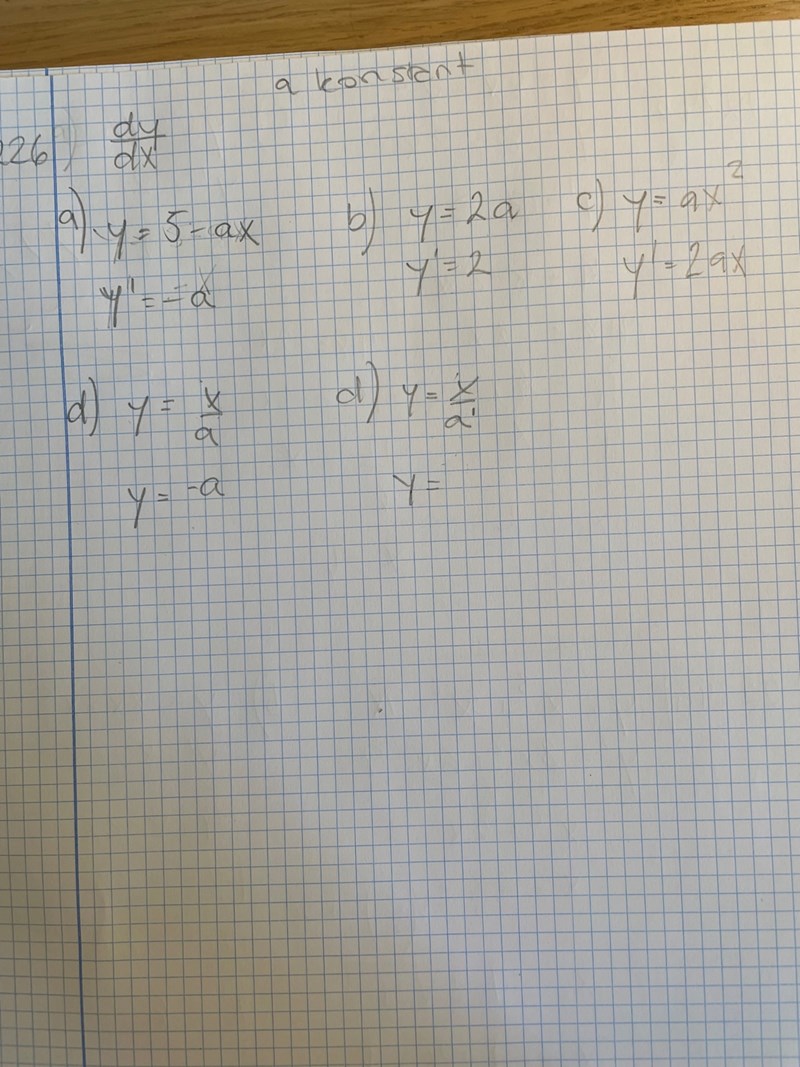 a konstant
226) dy/dx
a) y = 5 - ax
y' = -a
b) y = 2a
y' = 2
c) y = ax²
y' = 2ax
d) y = x/a
y = -a
d) y = x/a
y =